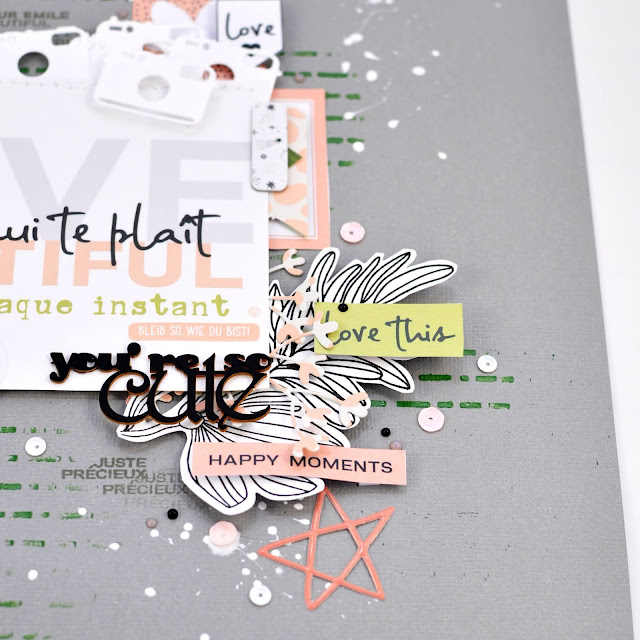 UR SMILE
AUTIFUL.
Love
VE
ui te plaît
TIFUL
aque instant
BLEIB SO, WIE DU BIST!
love this
you're so
cute
HAPPY MOMENTS
JUSTE
PRÉCIEUX
JUSTE
PRÉCIEUX
PRÉCIEUX